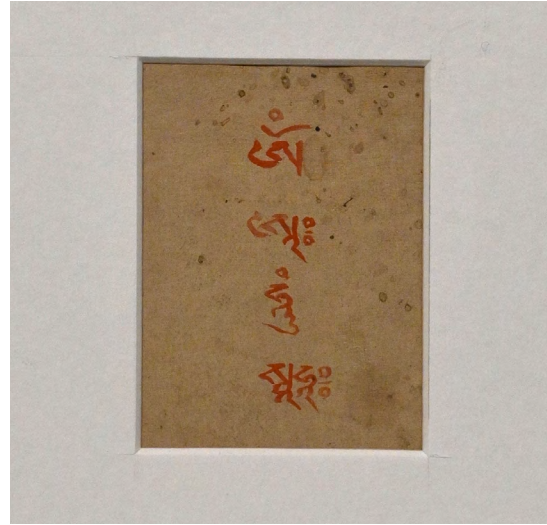 ཨོཾ
ཨཱཿ
ཧཱུཾ
སྭཱཧཱཿ